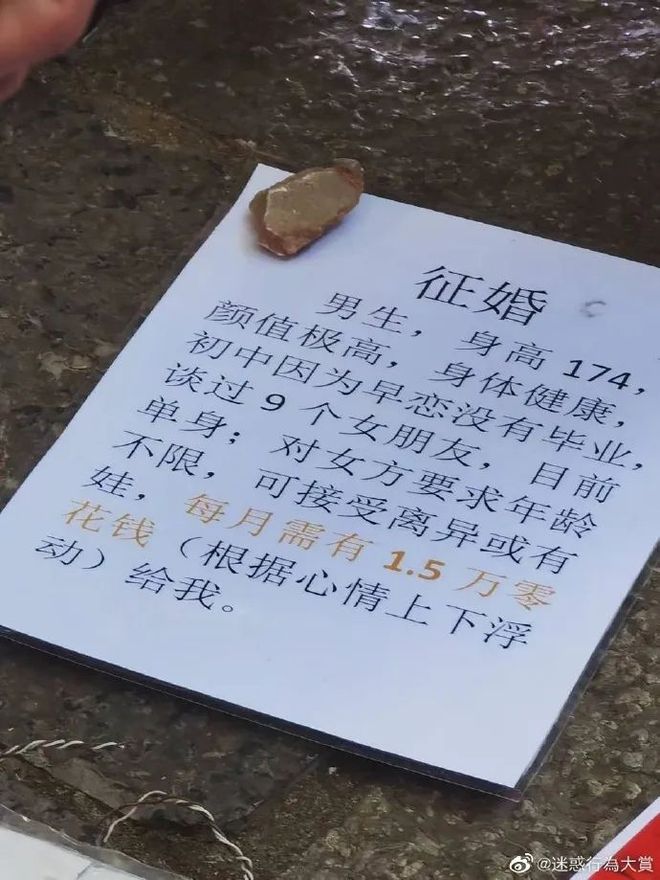 征婚
男生，身高174，
颜值极高，身体健康，
初中因为早恋没有毕业，
谈过9个女朋友，目前
单身；对女方要求年龄
不限，可接受离异或有
娃，每月需有1.5万零
花钱（根据心情上下浮
动）给我。
@迷惑行為大賞